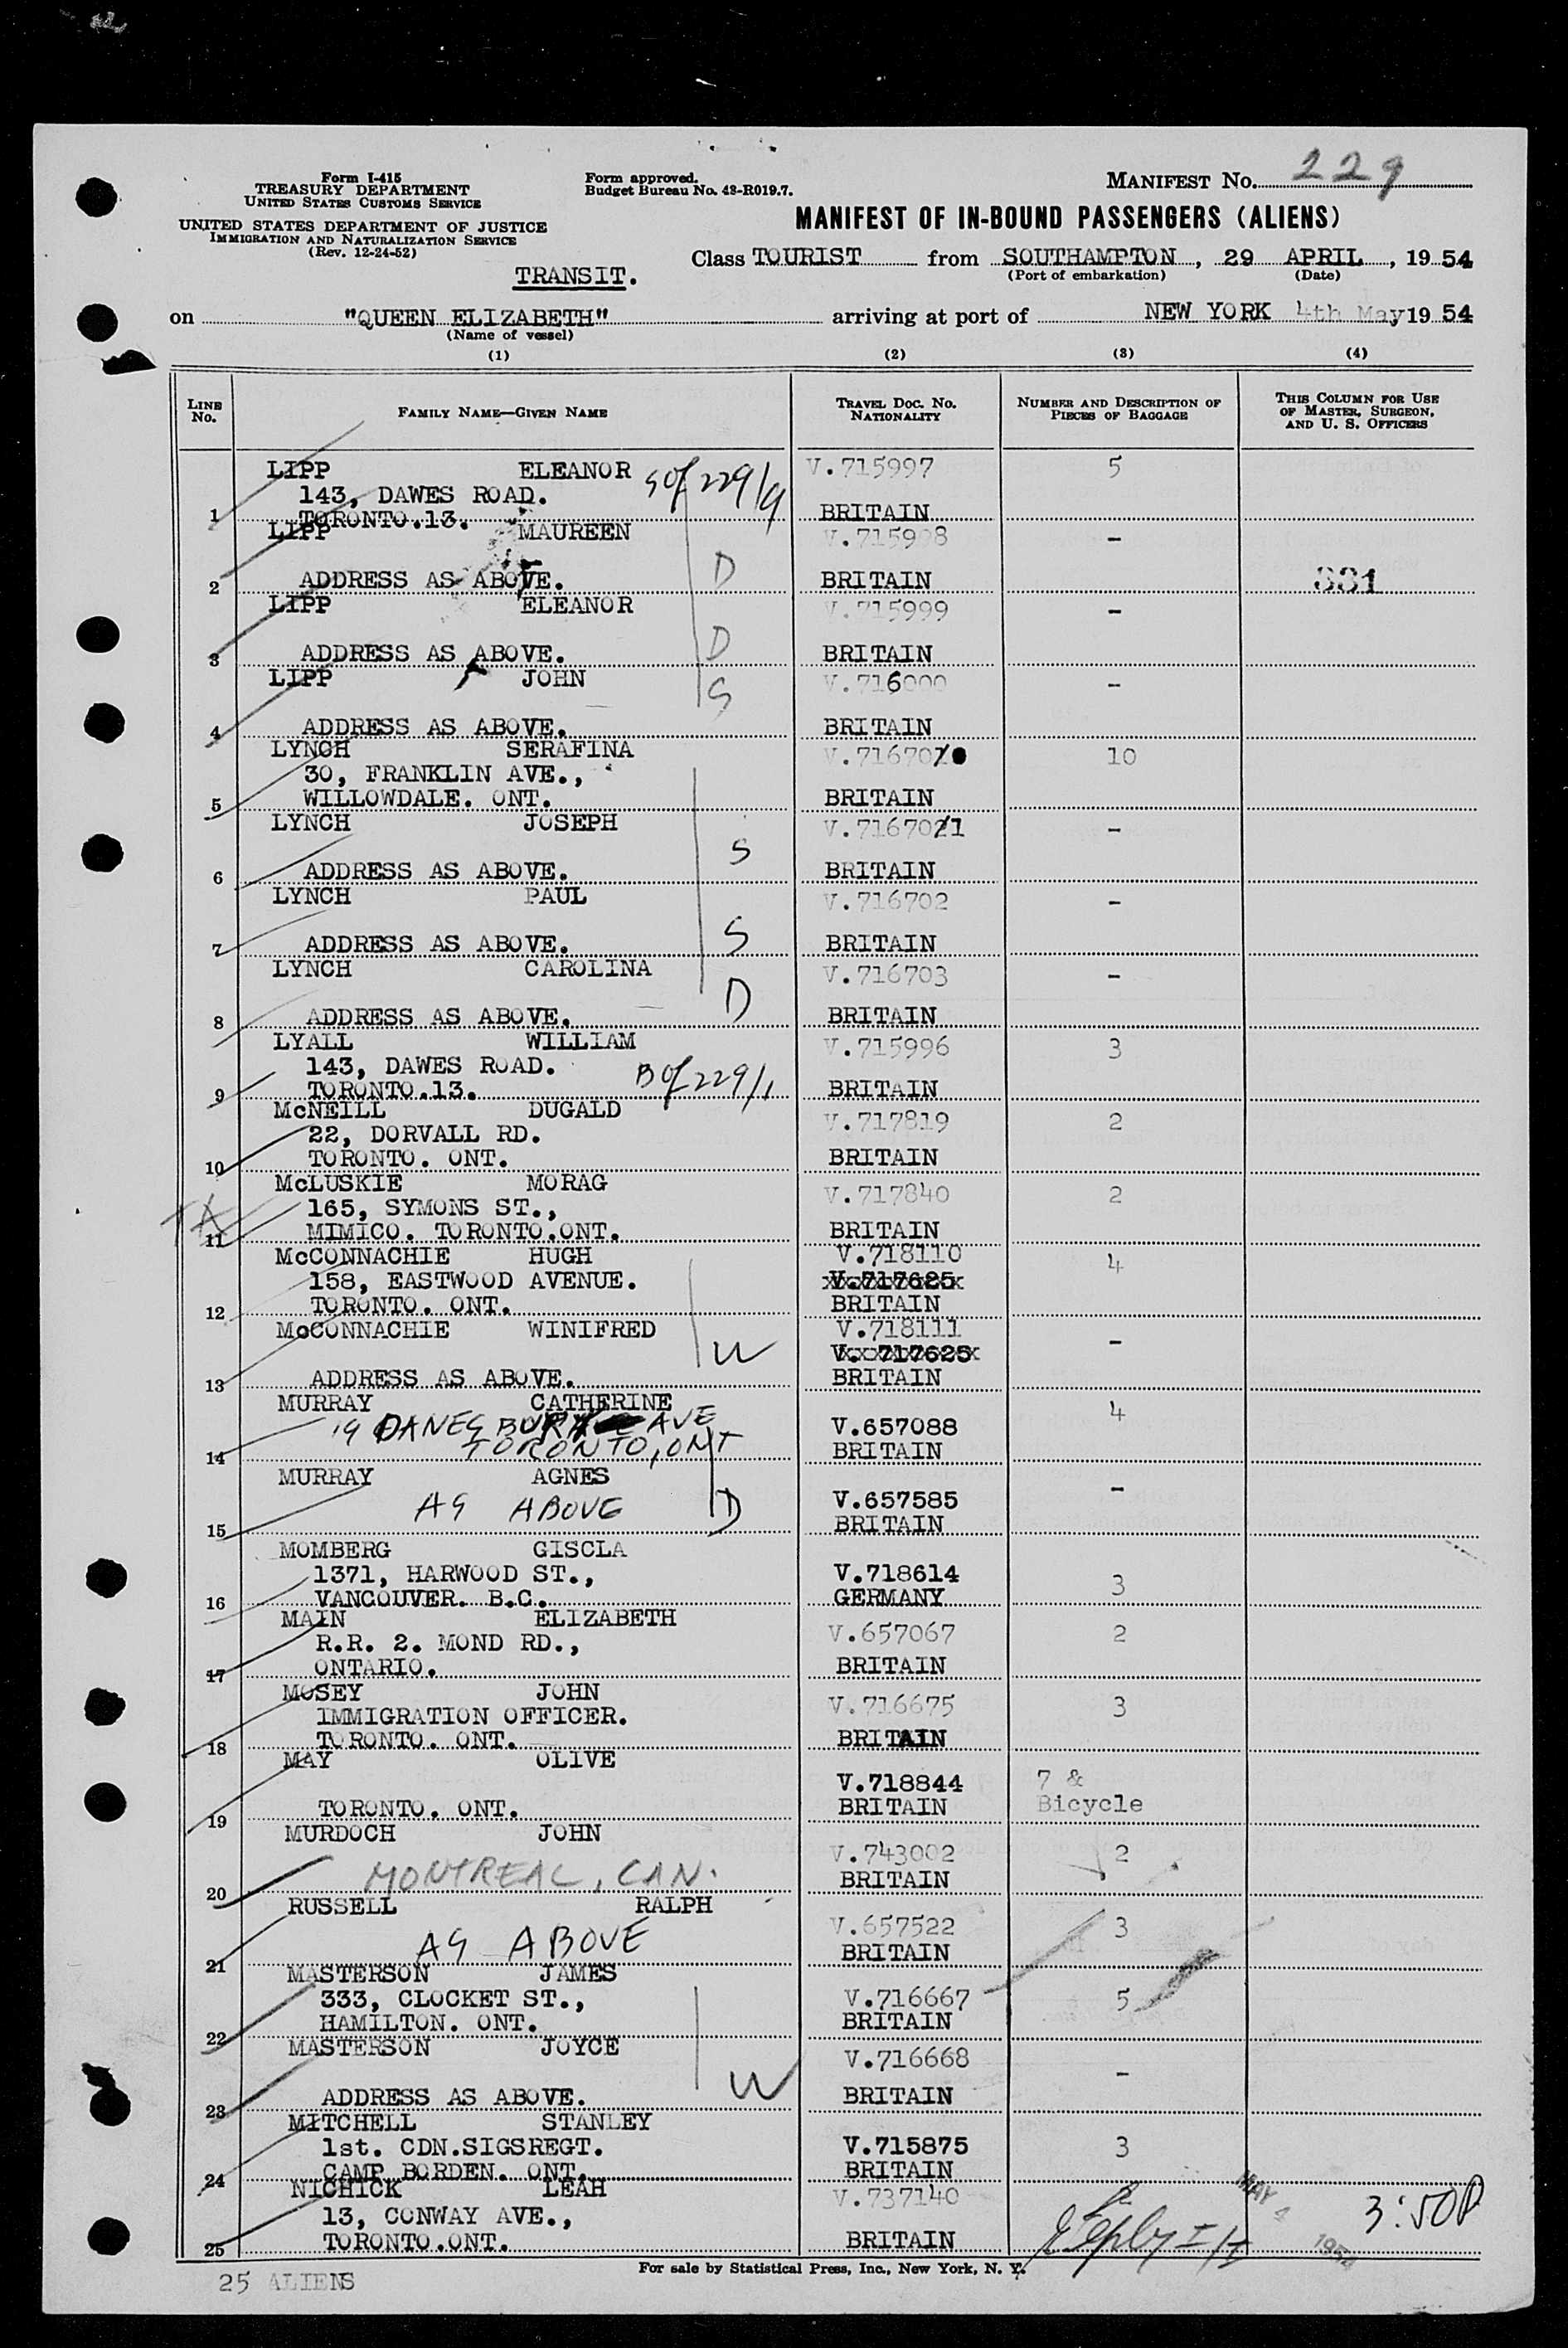 Form I-415
TREASURY DEPARTMENT
UNITED STATES CUSTOMS SERVICE
UNITED STATES DEPARTMENT OF JUSTICE
IMMIGRATION AND NATURALIZATION SERVICE
(Rev. 12-24-52)
Form approved.
Budget Bureau No. 43-R019.7.
MANIFEST No. 229
MANIFEST OF IN-BOUND PASSENGERS (ALIENS)
Class TOURIST from SOUTHAMPTON, 29 APRIL, 1954
(Port of embarkation) (Date)
TRANSIT.
on "QUEEN ELIZABETH" arriving at port of NEW YORK 4th May 1954
(Name of vessel)
(1) (2) (3) (4)
LINE No. FAMILY NAME—GIVEN NAME TRAVEL DOC. No. NATIONALITY NUMBER AND DESCRIPTION OF PIECES OF BAGGAGE THIS COLUMN FOR USE OF MASTER, SURGEON, AND U. S. OFFICERS
LIPP ELEANOR S of 229/9 V.715997 5
143, DAWES ROAD.
1 TORONTO.13. BRITAIN
LIPP MAUREEN V.715998 -
2 ADDRESS AS ABOVE. D BRITAIN 331
LIPP ELEANOR V.715999 -
3 ADDRESS AS ABOVE. D BRITAIN
LIPP JOHN S V.716000 -
4 ADDRESS AS ABOVE. BRITAIN
LYNCH SERAFINA V.716700 10
30, FRANKLIN AVE.,
5 WILLOWDALE. ONT. BRITAIN
LYNCH JOSEPH V.716701 -
6 ADDRESS AS ABOVE. S BRITAIN
LYNCH PAUL V.716702 -
7 ADDRESS AS ABOVE. S BRITAIN
LYNCH CAROLINA V.716703 -
8 ADDRESS AS ABOVE. D BRITAIN
LYALL WILLIAM V.715996 3
143, DAWES ROAD.
9 TORONTO.13. B of 229/1 BRITAIN
McNEILL DUGALD V.717819 2
22, DORVALL RD.
10 TORONTO. ONT. BRITAIN
McLUSKIE MORAG V.717840 2
165, SYMONS ST.,
11 MIMICO. TORONTO.ONT. BRITAIN
McCONNACHIE HUGH V.718110 4
158, EASTWOOD AVENUE. V.717625
12 TORONTO. ONT. BRITAIN
McCONNACHIE WINIFRED V.718111 -
W V.717625
13 ADDRESS AS ABOVE. BRITAIN
MURRAY CATHERINE 4
19 DANESBURY AVE V.657088
14 TORONTO, ONT BRITAIN
MURRAY AGNES -
AS ABOVE D V.657585
15 BRITAIN
MOMBERG GISCLA
1371, HARWOOD ST., V.718614 3
16 VANCOUVER. B.C. GERMANY
MAIN ELIZABETH V.657067 2
R.R. 2. MOND RD.,
17 ONTARIO. BRITAIN
MOSEY JOHN V.716675 3
IMMIGRATION OFFICER.
18 TORONTO. ONT. BRITAIN
MAY OLIVE
V.718844 7 &
19 TORONTO. ONT. BRITAIN Bicycle
MURDOCH JOHN V.743002 2
20 MONTREAL, CAN. BRITAIN
RUSSELL RALPH V.657522 3
21 AS ABOVE BRITAIN
MASTERSON JAMES
333, CLOCKET ST., V.716667 5
22 HAMILTON. ONT. BRITAIN
MASTERSON JOYCE V.716668 -
23 ADDRESS AS ABOVE. W BRITAIN
MITCHELL STANLEY
1st. CDN.SIGSREGT. V.715875 3
24 CAMP BORDEN. ONT. BRITAIN
NICHICK LEAH V.737140 2
13, CONWAY AVE., MAY 4 1954 3:50P
25 TORONTO.ONT. BRITAIN
For sale by Statistical Press, Inc., New York, N. Y.
25 ALIENS